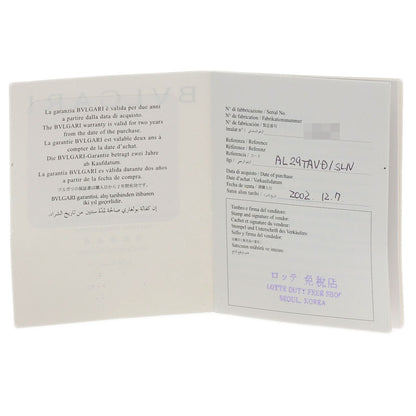 BVLGARI
La garanzia BVLGARI è valida per due anni
a partire dalla data di acquisto.
The BVLGARI warranty is valid for two years
from the date of the purchase.
La garantie BVLGARI est valable deux ans à
compter de la date d'achat.
Die BVLGARI-Garantie betragt zwei Jahre
ab Kaufdatum.
La garantía BVLGARI es válida durante dos años
a partir de la fecha de compra.
ブルガリの保証書は購入日から2年間有効です。
BVLGARI garantisi, alış tarihinden itibaren
iki yıl geçerlidir.
إن كفالة بولغاري صالحة لمدة سنتين من تاريخ الشراء.
N° di fabbricazione / Serial No.
N° de fabrication / Fabrikationsnummer
N° de fabricación / 製造番号
Referenza / Reference
Référence / Referenz
Referencia / コード
AL29TAVD/SLN
Data di acquisto / Date of purchase
Date d'achat / Verkaufsdatum
Fecha de venta / 御購入日
Satın alım tarihi /
2002. 12. 7
Timbro e firma del venditore:
Stamp and signature of vendor:
Cachet et signature du vendeur:
Stempel und Unterschrift des Verkäufers:
Sello y firma del vendedor:
Satıcının mühürü ve imzası:
ロッテ 免税店
LOTTE DUTY FREE SHOP
SEOUL, KOREA